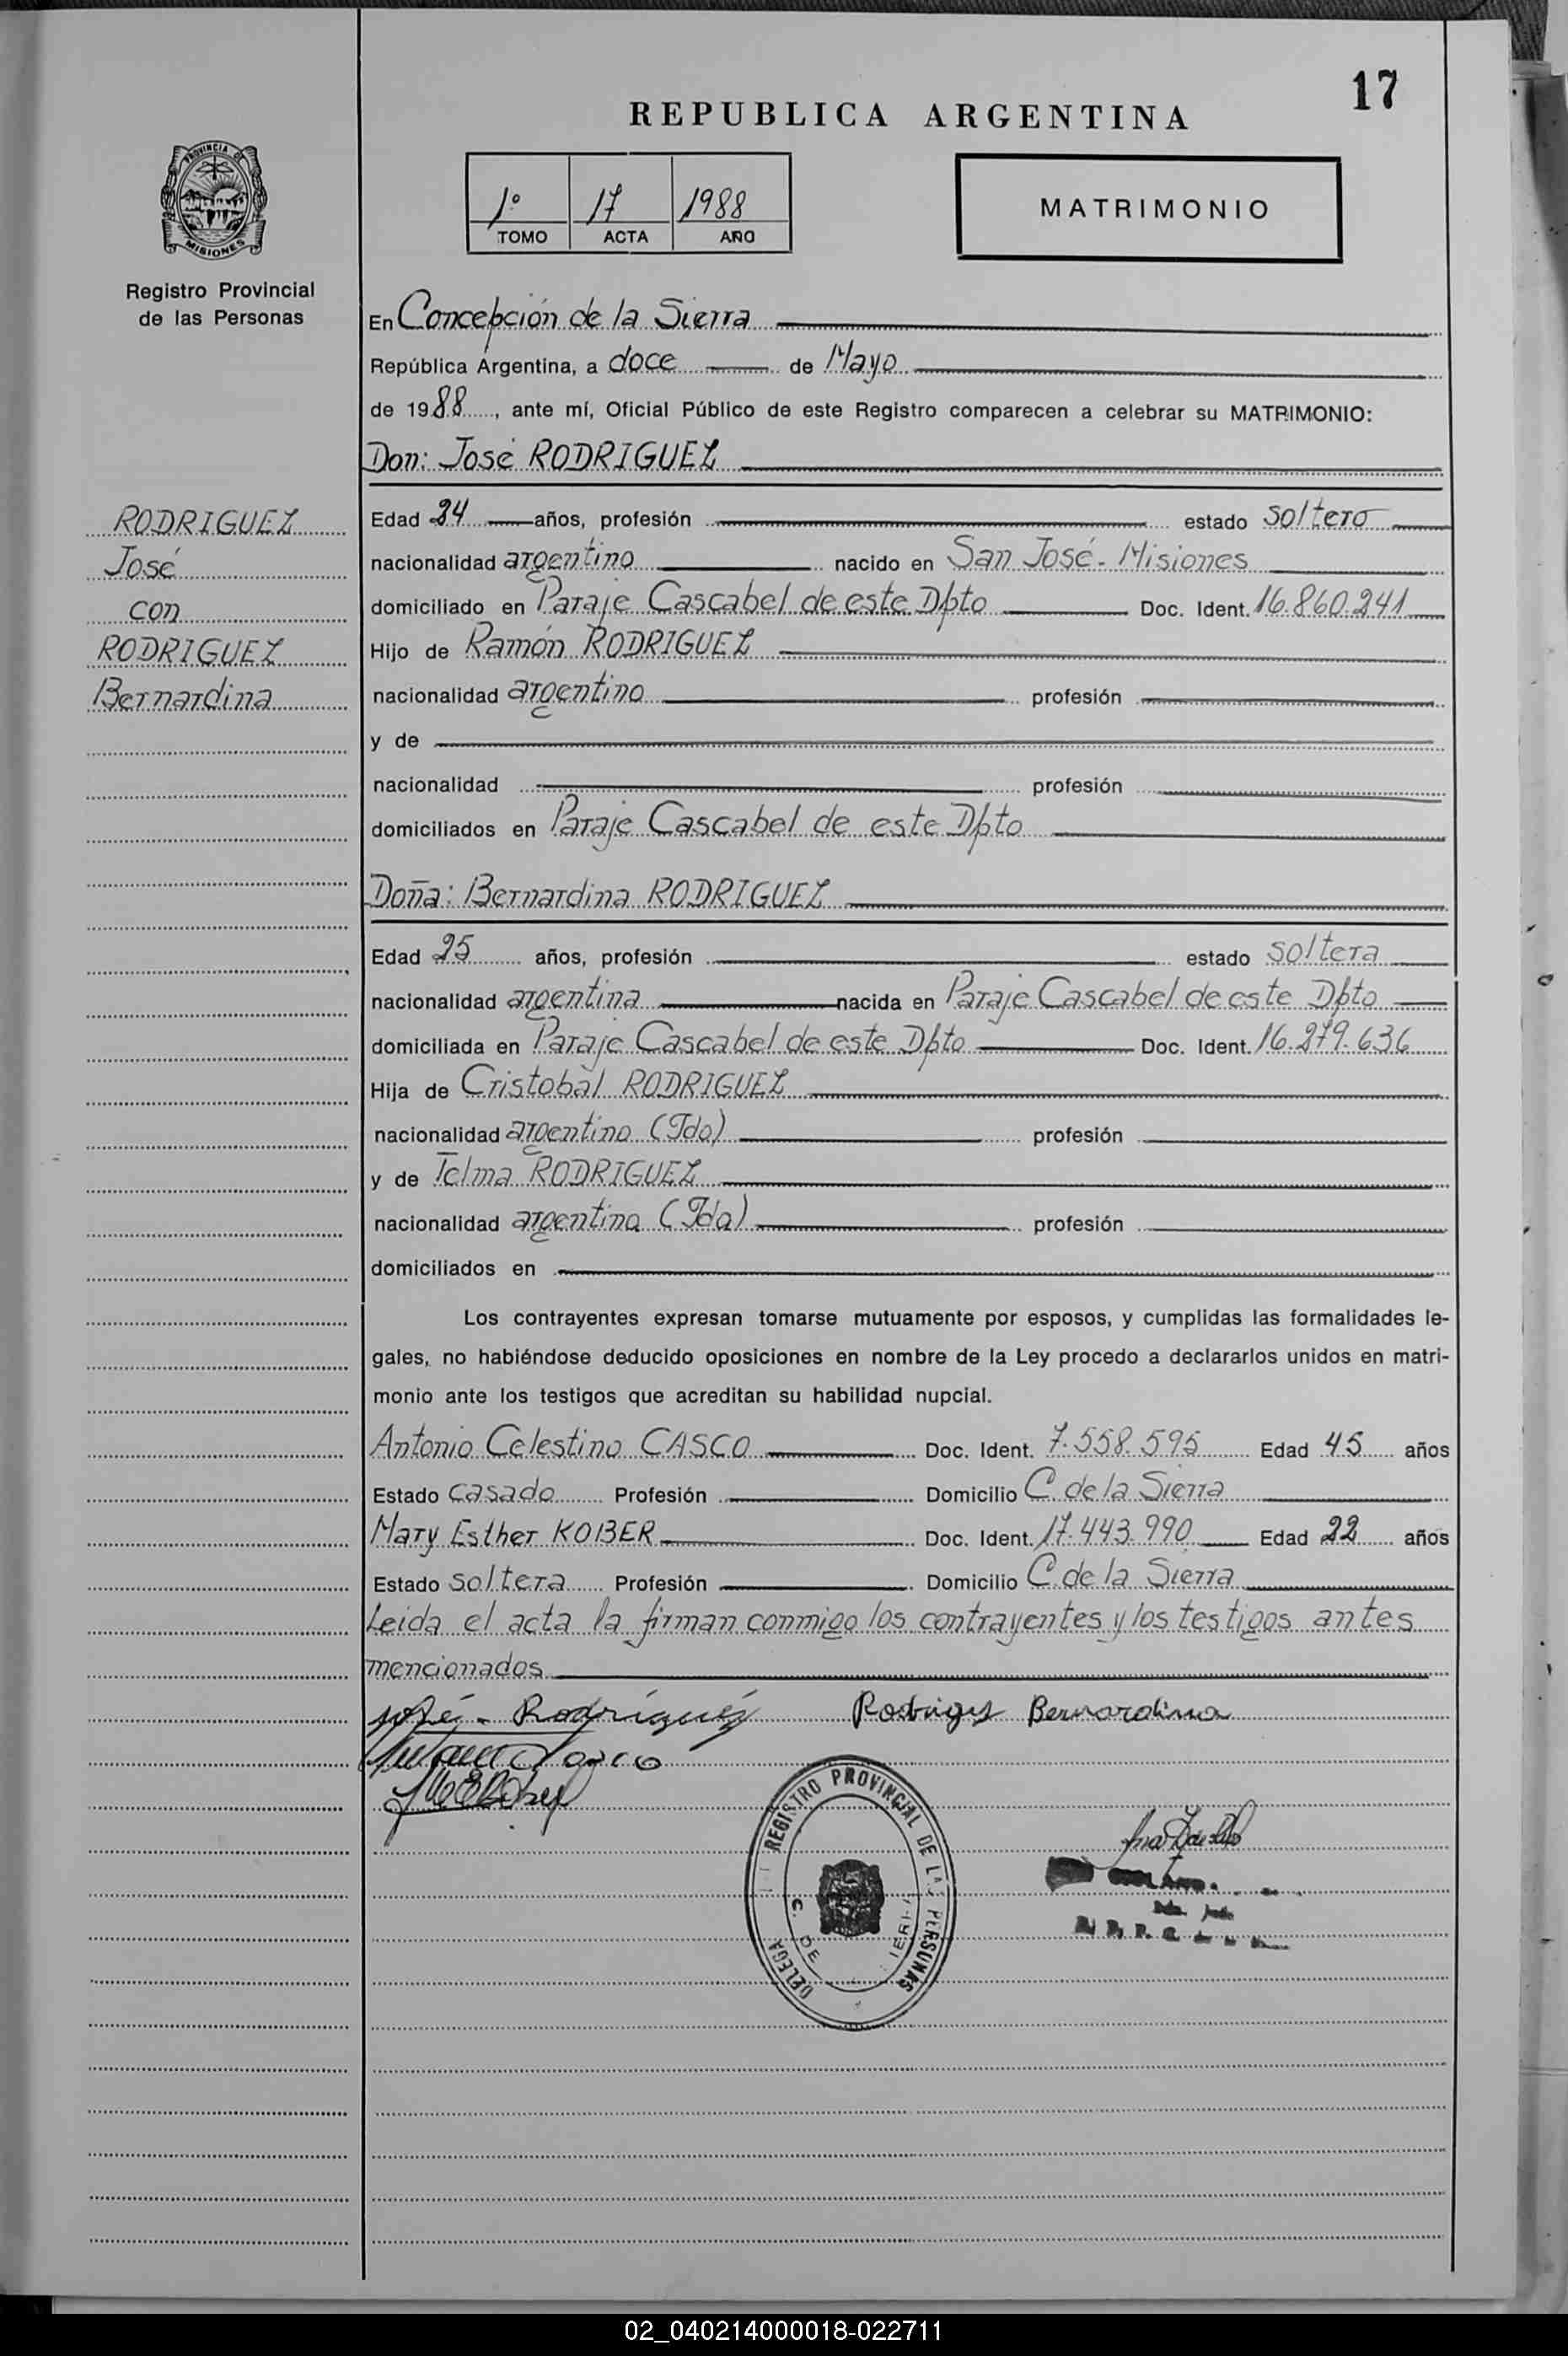 17
REPUBLICA ARGENTINA
1º 17 1988
TOMO ACTA AÑO
MATRIMONIO
PROVINCIA DE
MISIONES
Registro Provincial
de las Personas
En Concepción de la Sierra
República Argentina, a doce de Mayo
de 1988, ante mí, Oficial Público de este Registro comparecen a celebrar su MATRIMONIO:
Don: José RODRIGUEZ
RODRIGUEZ
José
con
RODRIGUEZ
Bernardina
Edad 24 años, profesión estado soltero
nacionalidad argentino nacido en San José - Misiones
domiciliado en Paraje Cascabel de este Dpto Doc. Ident. 16.860.241
Hijo de Ramón RODRIGUEZ
nacionalidad argentino profesión
y de
nacionalidad profesión
domiciliados en Paraje Cascabel de este Dpto
Doña: Bernardina RODRIGUEZ
Edad 25 años, profesión estado soltera
nacionalidad argentina nacida en Paraje Cascabel de este Dpto
domiciliada en Paraje Cascabel de este Dpto Doc. Ident. 16.279.636
Hija de Cristobal RODRIGUEZ
nacionalidad argentino (Fdo) profesión
y de Telma RODRIGUEZ
nacionalidad argentina (Fda) profesión
domiciliados en
Los contrayentes expresan tomarse mutuamente por esposos, y cumplidas las formalidades le-
gales, no habiéndose deducido oposiciones en nombre de la Ley procedo a declararlos unidos en matri-
monio ante los testigos que acreditan su habilidad nupcial.
Antonio Celestino CASCO Doc. Ident. 7.558.595 Edad 45 años
Estado casado Profesión Domicilio C. de la Sierra
Mary Esther KOBER Doc. Ident. 17.443.990 Edad 22 años
Estado soltera Profesión Domicilio C. de la Sierra
Leida el acta la firman conmigo los contrayentes y los testigos antes
mencionados
José - Rodríguéz Rodriguez Bernardina
REGISTRO PROVINCIAL DE LAS PERSONAS
DELEGA
C. DE
02_040214000018-022711